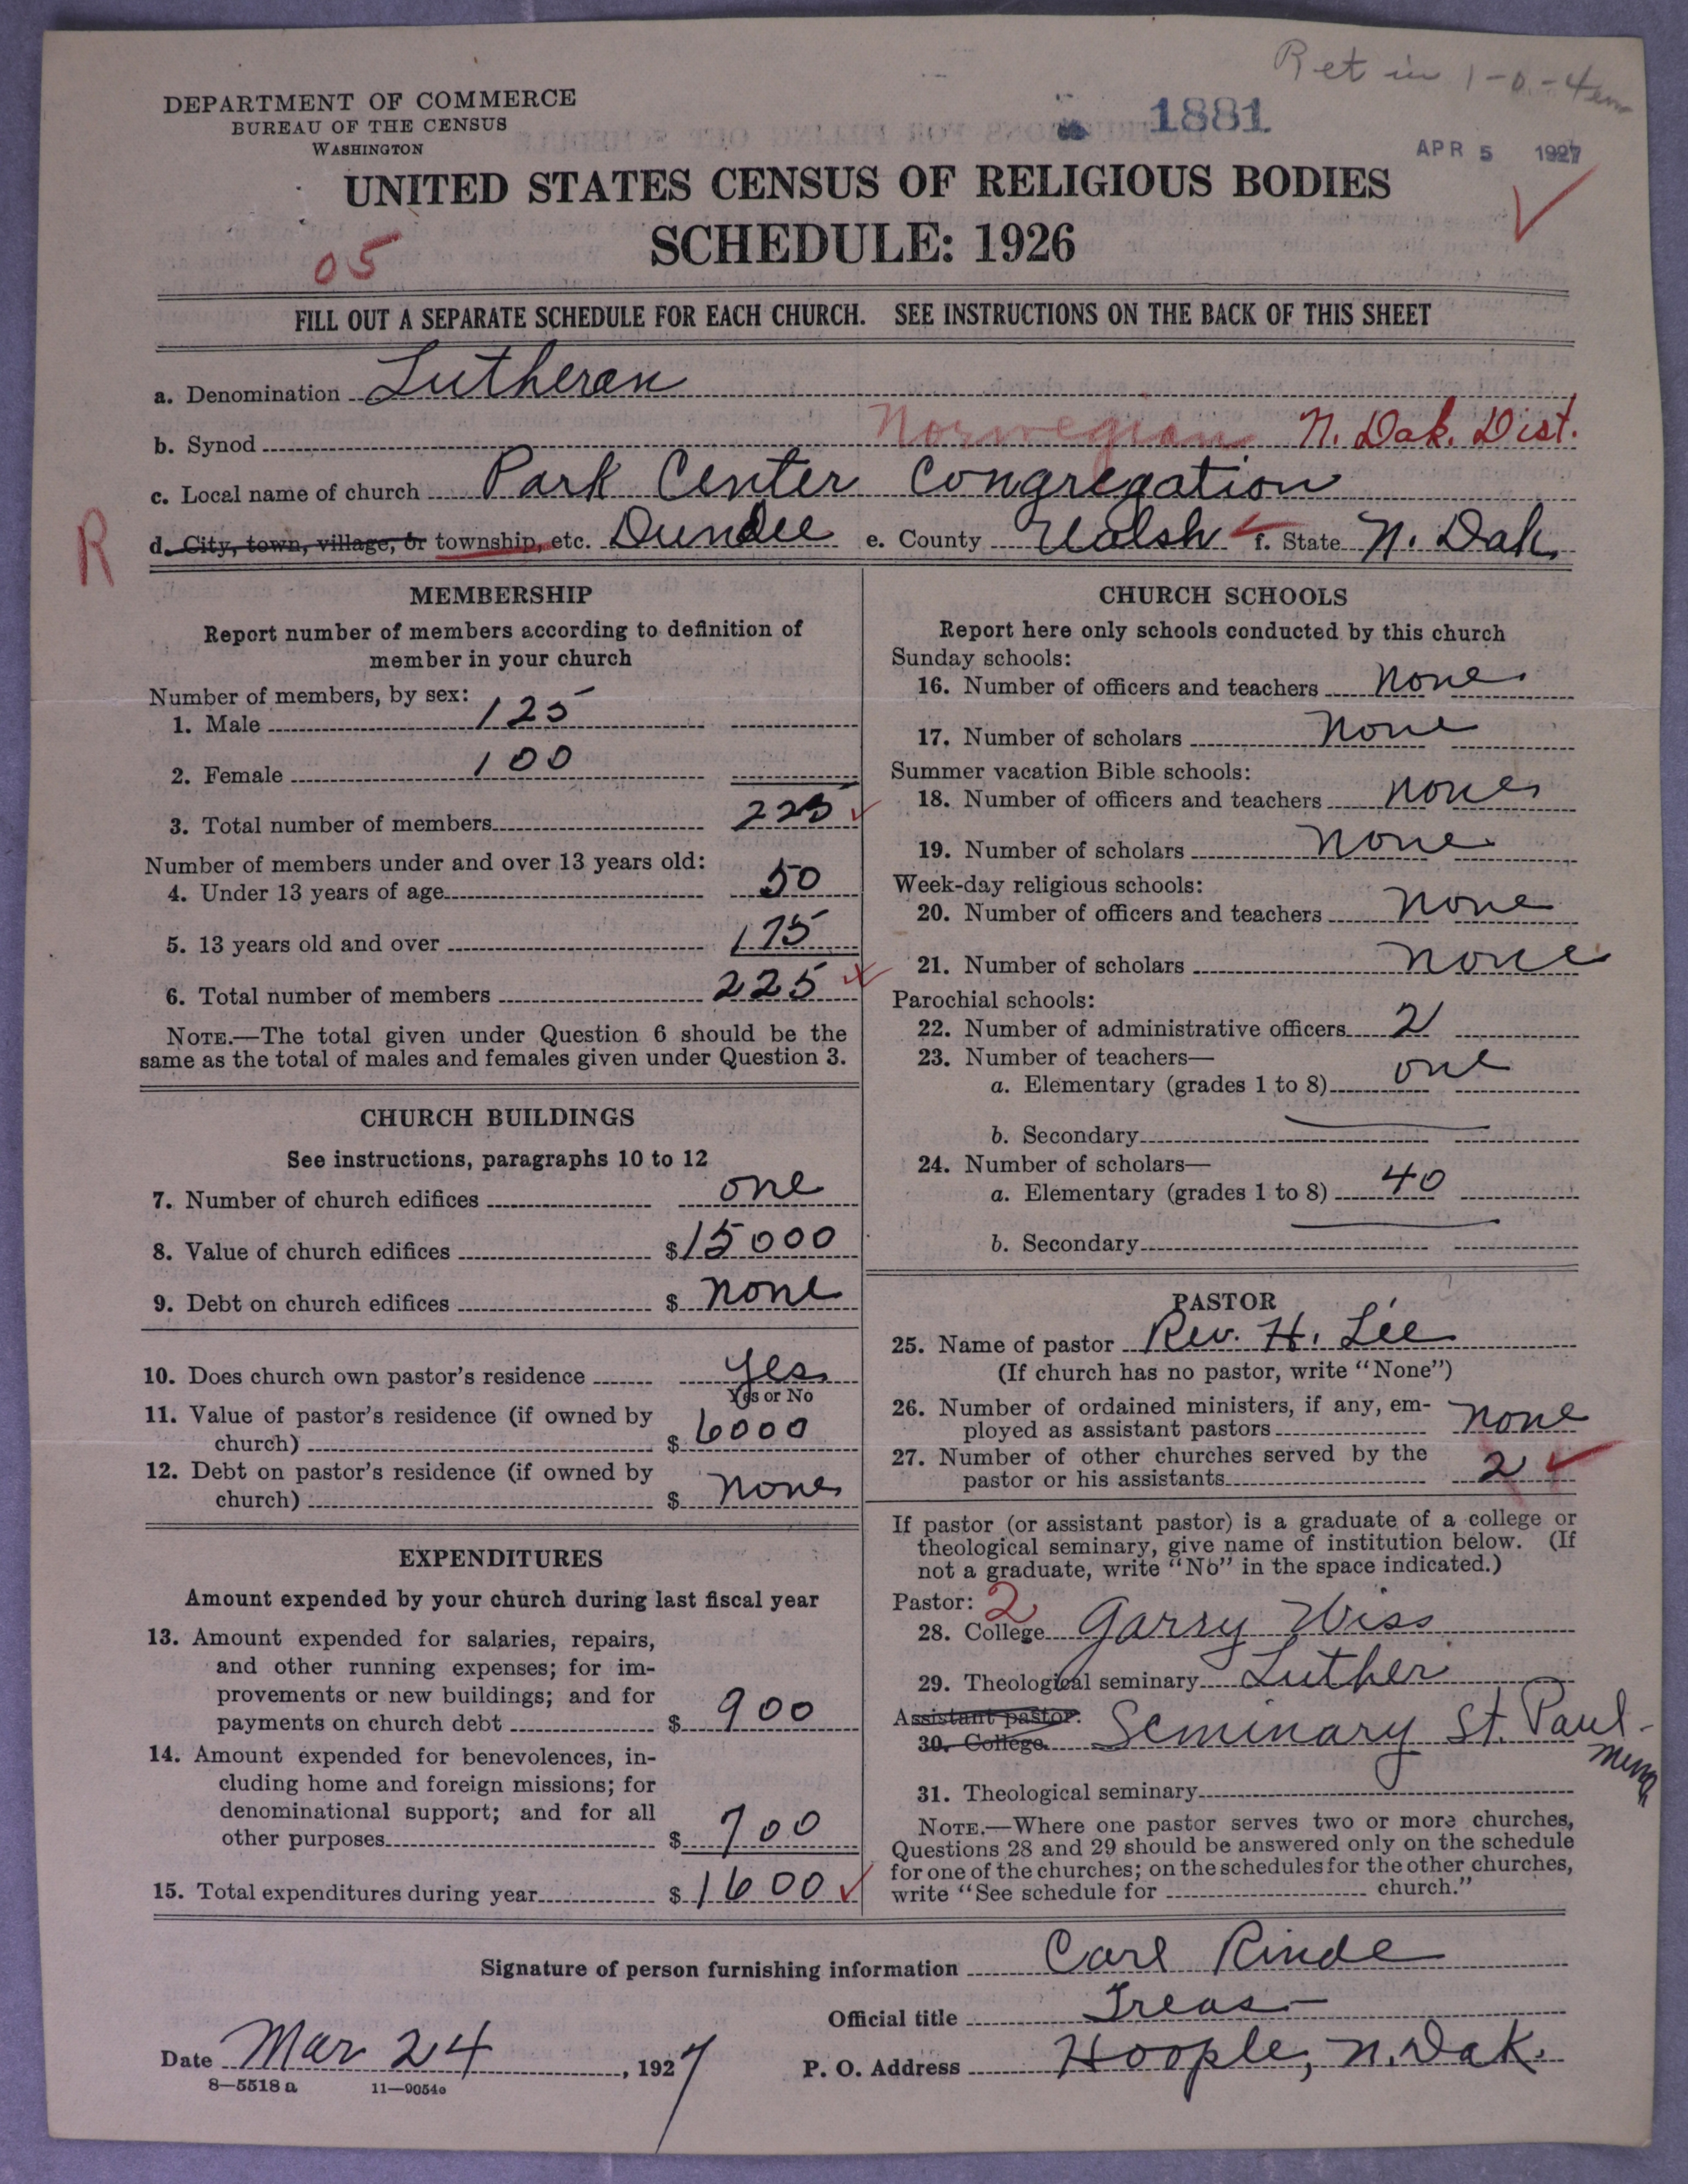 Ret in 1-0-4
DEPARTMENT OF COMMERCE
BUREAU OF THE CENSUS
WASHINGTON
1881
APR 5 1927
UNITED STATES CENSUS OF RELIGIOUS BODIES
SCHEDULE: 1926
05
FILL OUT A SEPARATE SCHEDULE FOR EACH CHURCH. SEE INSTRUCTIONS ON THE BACK OF THIS SHEET
a. Denomination Lutheran
b. Synod Norwegian N. Dak. Dist.
c. Local name of church Park Center Congregation
R
d. City, town, village, or township, etc. Dundee e. County Walsh f. State N. Dak.
MEMBERSHIP
Report number of members according to definition of
member in your church
Number of members, by sex:
1. Male 125
2. Female 100
3. Total number of members 225
Number of members under and over 13 years old:
4. Under 13 years of age 50
5. 13 years old and over 175
6. Total number of members 225
NOTE.—The total given under Question 6 should be the
same as the total of males and females given under Question 3.
CHURCH BUILDINGS
See instructions, paragraphs 10 to 12
7. Number of church edifices one
8. Value of church edifices $15000
9. Debt on church edifices $ none
10. Does church own pastor's residence yes
Yes or No
11. Value of pastor's residence (if owned by
church) $ 6000
12. Debt on pastor's residence (if owned by
church) $ none
EXPENDITURES
Amount expended by your church during last fiscal year
13. Amount expended for salaries, repairs,
and other running expenses; for im-
provements or new buildings; and for
payments on church debt $ 900
14. Amount expended for benevolences, in-
cluding home and foreign missions; for
denominational support; and for all
other purposes $ 700
15. Total expenditures during year $ 1600
CHURCH SCHOOLS
Report here only schools conducted by this church
Sunday schools:
16. Number of officers and teachers none
17. Number of scholars none
Summer vacation Bible schools:
18. Number of officers and teachers none
19. Number of scholars none
Week-day religious schools:
20. Number of officers and teachers none
21. Number of scholars none
Parochial schools:
22. Number of administrative officers 2
23. Number of teachers—
a. Elementary (grades 1 to 8) one
b. Secondary
24. Number of scholars—
a. Elementary (grades 1 to 8) 40
b. Secondary
PASTOR
25. Name of pastor Rev. H. Lee
(If church has no pastor, write "None")
26. Number of ordained ministers, if any, em-
ployed as assistant pastors none
27. Number of other churches served by the
pastor or his assistants 2
If pastor (or assistant pastor) is a graduate of a college or
theological seminary, give name of institution below. (If
not a graduate, write "No" in the space indicated.)
Pastor: 2
28. College Garry Wiss
29. Theological seminary Luther
Assistant pastor:
30. College Seminary St. Paul-
Minn
31. Theological seminary
NOTE.—Where one pastor serves two or more churches,
Questions 28 and 29 should be answered only on the schedule
for one of the churches; on the schedules for the other churches,
write "See schedule for church."
Signature of person furnishing information Carl Rinde
Official title Treas-
Date Mar 24, 1927 P. O. Address Hoople, N. Dak.
8—5518 a 11—9054a